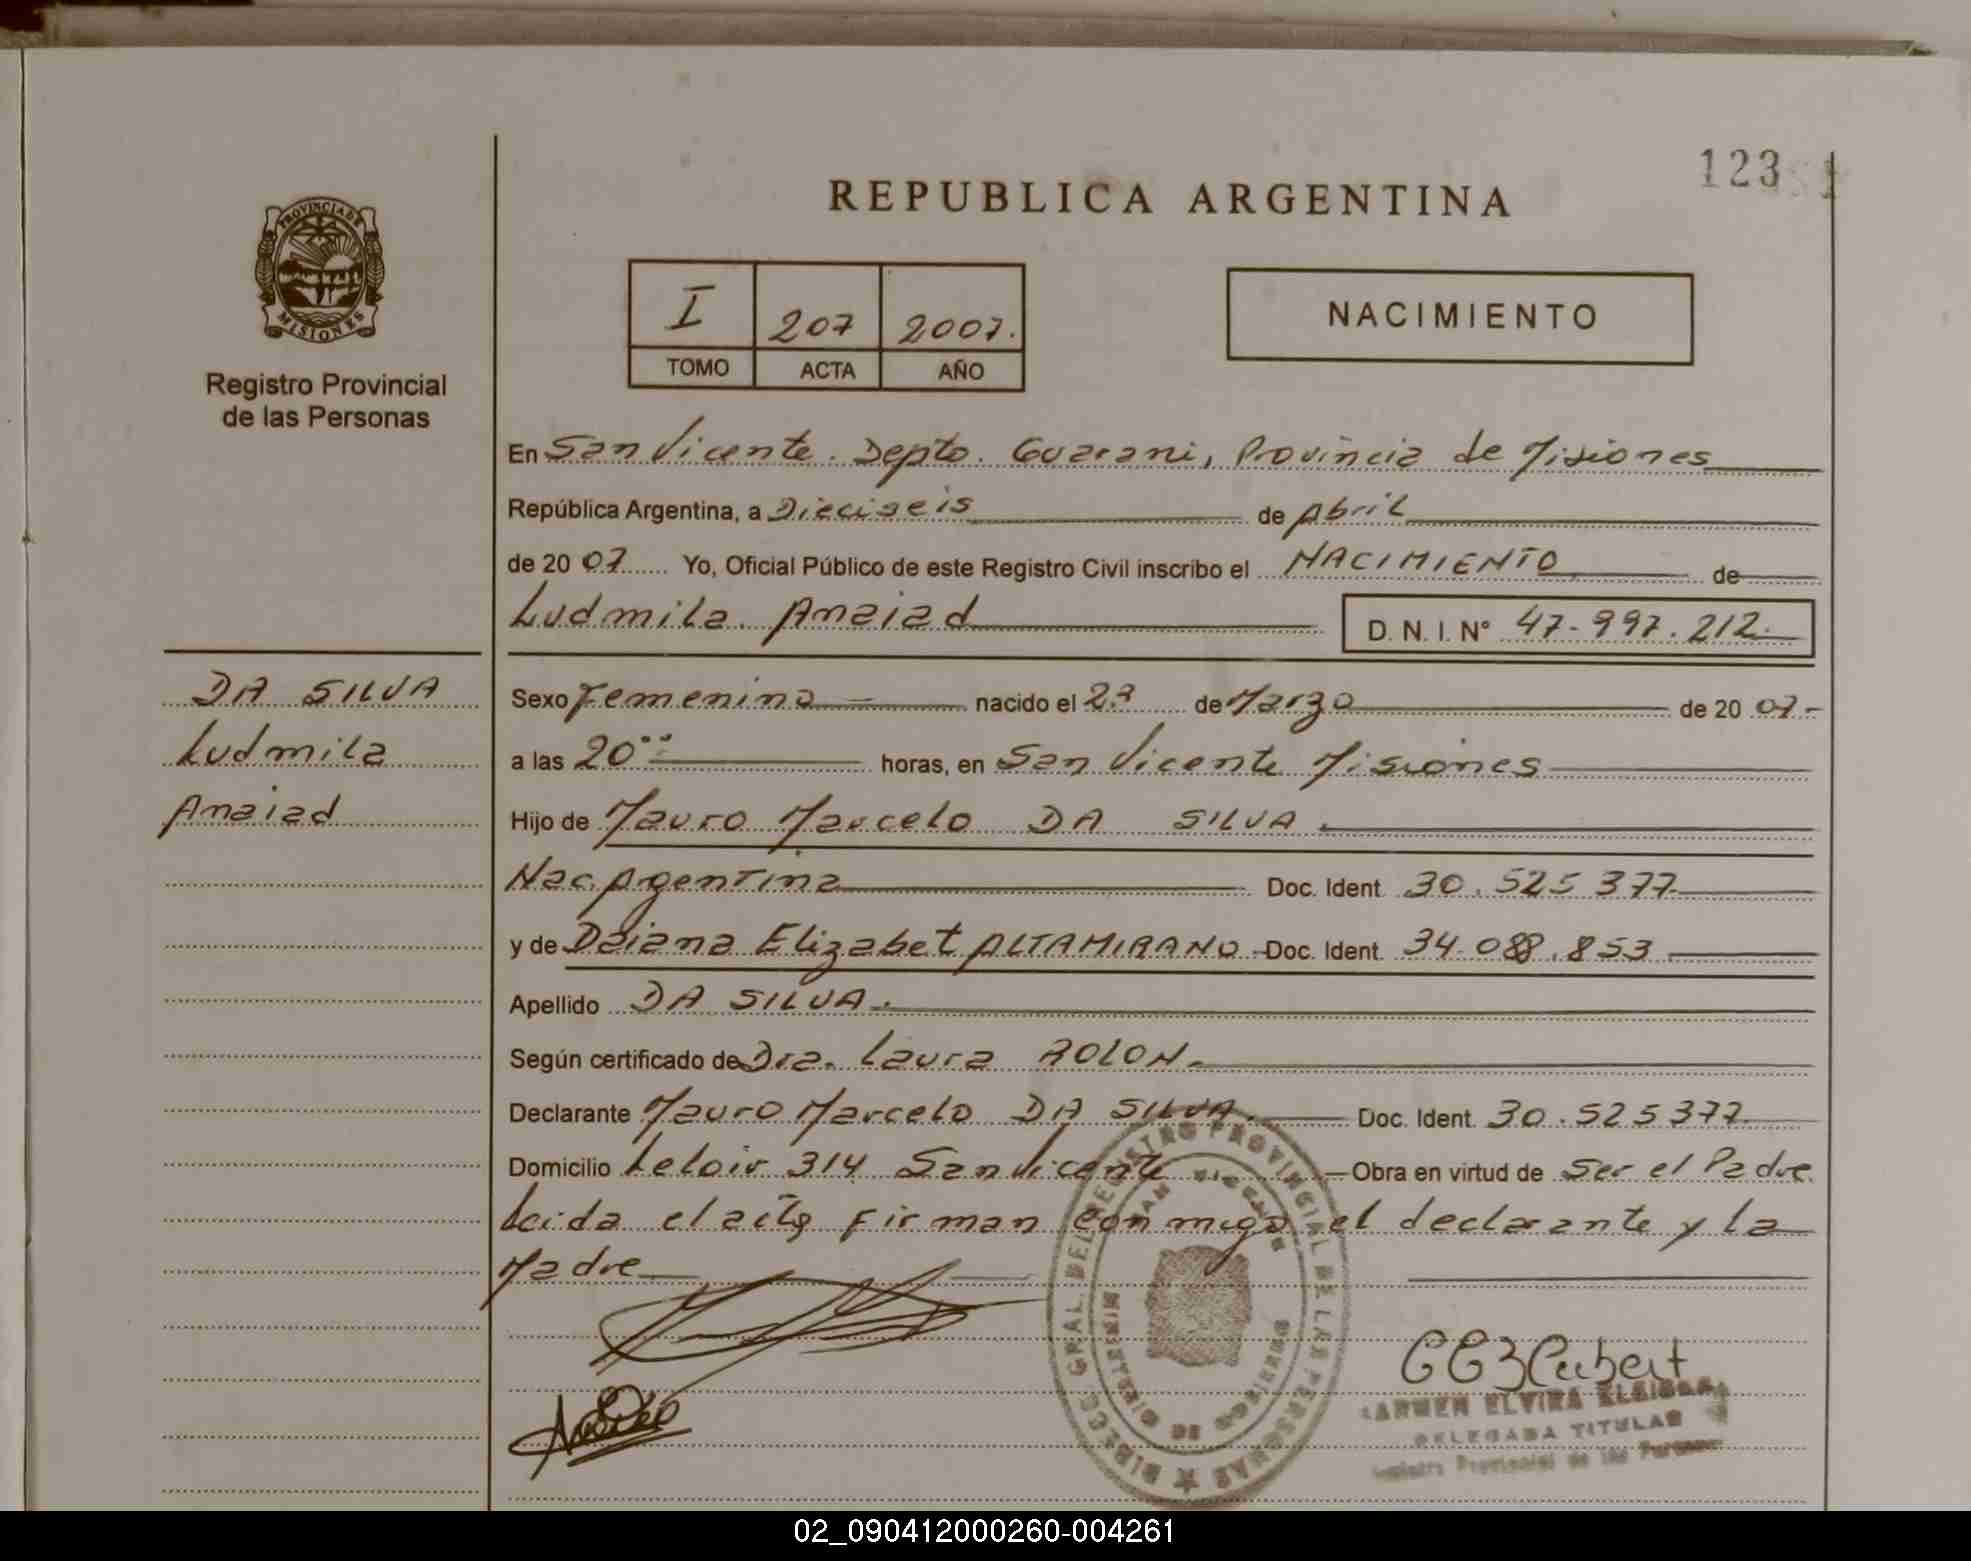 123
REPUBLICA ARGENTINA
PROVINCIA DE
MISIONES
Registro Provincial
de las Personas
I 207 2007.
TOMO ACTA AÑO
NACIMIENTO
En San Vicente. Depto. Guarani, Provincia de Misiones
República Argentina, a Dieciseis de Abril
de 2007 Yo, Oficial Público de este Registro Civil inscribo el NACIMIENTO de
Ludmila Anaiad D. N. I. N° 47-997.212.
DA SILVA
Ludmila
Anaiad
Sexo Femenino nacido el de Marzo de 2007-
a las 20 horas, en San Vicente Misiones
Hijo de Mauro Marcelo DA SILVA
Nac. Argentina Doc. Ident. 30.525377
y de Daiana Elizabet ALTAMIRANO - Doc. Ident. 34.088.853
Apellido DA SILVA.
Según certificado de Dra. Laura ROLON.
Declarante Mauro Marcelo DA SILVA. Doc. Ident. 30.525377
Domicilio Leloir 314 San Vicente — Obra en virtud de Ser el Padre
Leida el acta Firman conmigo el declarante y la
Madre
DIRECC. GRAL. DEL REGISTRO PROVINCIAL DE LAS PERSONAS
CARMEN ELVIRA
DELEGADA TITULAR
Registro Provincial de las Personas
02_090412000260-004261